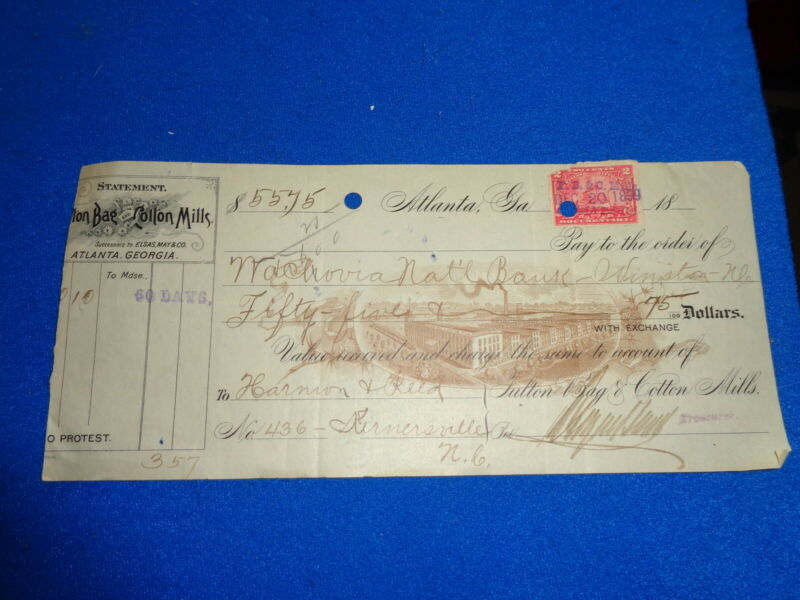 STATEMENT.
ton Bag and Cotton Mills,
Successors to ELSAS, MAY & CO.
ATLANTA, GEORGIA.
To Mdse.,
10 60 DAYS,
O PROTEST.
357
$ 55 75 Atlanta, Ga 18
2 2
F. B. & C. M.
20 1899
DOCUMENTARY
Pay to the order of
Wachovia Nat'l Bank - Winston N.C.
Fifty-five & 75/100 Dollars.
WITH EXCHANGE
Value received and charge the same to account of
To Harmon & Reed Fulton Bag & Cotton Mills.
No 436 - Kernersville Per Treasurer.
N.C.